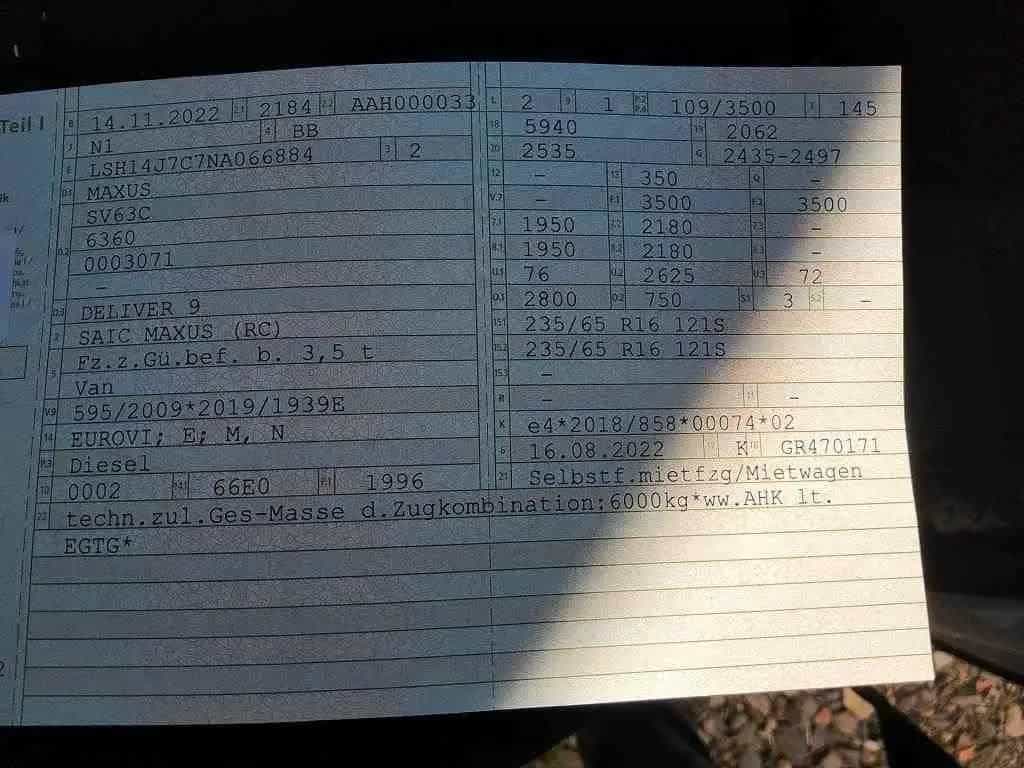 Teil I
B 14.11.2022 2.1 2184 2.2 AAH000033
J N1 4 BB
E LSH14J7C7NA066884 3 2
D.1 MAXUS
SV63C
D.2 6360
0003071
–
D.3 DELIVER 9
2 SAIC MAXUS (RC)
5 Fz.z.Gü.bef. b. 3,5 t
Van
V.9 595/2009*2019/1939E
14 EUROVI; E; M, N
P.3 Diesel
10 0002 14.1 66E0 P.1 1996
L 2 9 1 P.2 P.4 109/3500 T 145
18 5940 19 2062
20 2535 G 2435-2497
12 – 13 350 Q –
V.7 – F.1 3500 F.2 3500
7.1 1950 7.2 2180 7.3 –
8.1 1950 8.2 2180 8.3 –
U.1 76 U.2 2625 U.3 72
O.1 2800 O.2 750 S.1 3 S.2 –
15.1 235/65 R16 121S
15.2 235/65 R16 121S
15.3 –
R – 11 –
K e4*2018/858*00074*02
6 16.08.2022 17 K 16 GR470171
21 Selbstf.mietfzg/Mietwagen
22 techn.zul.Ges-Masse d.Zugkombination:6000kg*ww.AHK lt.
EGTG*